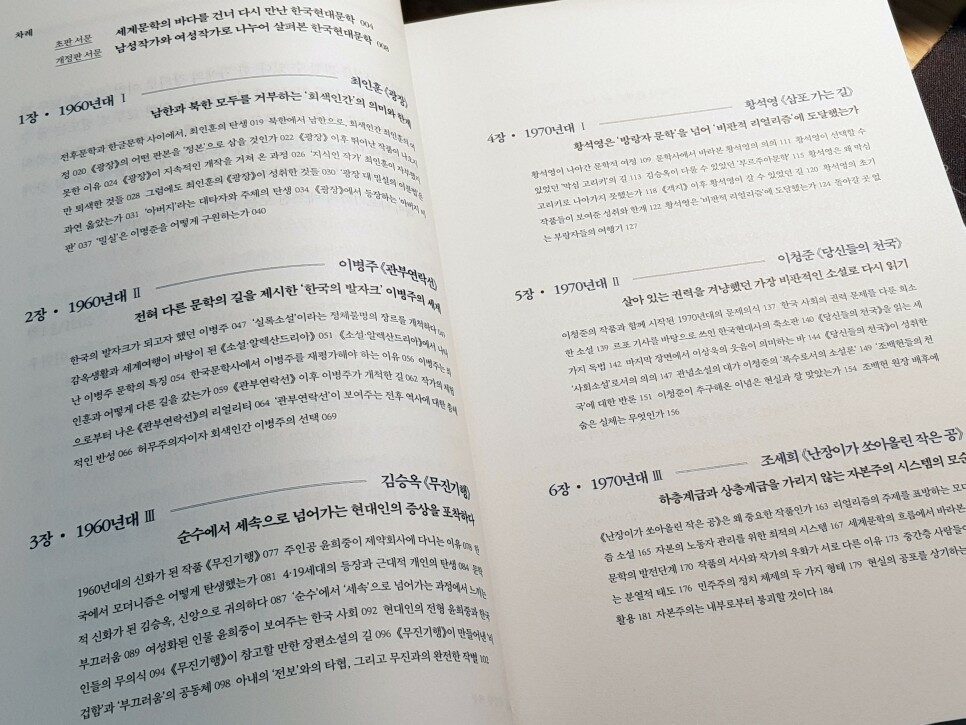 차례
초판 서문 세계문학의 바다를 건너 다시 만난 한국현대문학 004
개정판 서문 남성작가와 여성작가로 나누어 살펴본 한국현대문학 008
1장 • 1960년대 Ⅰ 최인훈 《광장》
남한과 북한 모두를 거부하는 ‘회색인간’의 의미와 한계
전후문학과 한글문학 사이에서, 최인훈의 탄생 019 북한에서 남한으로, 회색인간 최인훈의
정 020 《광장》의 어떤 판본을 ‘정본’으로 삼을 것인가 022 《광장》 이후 뛰어난 작품이 나오지
못한 이유 024 《광장》이 지속적인 개작을 거쳐 온 과정 026 ‘지식인 작가’ 최인훈이 자처했지
만 퇴색한 것들 028 그럼에도 최인훈의 《광장》이 성취한 것들 030 ‘광장 대 밀실’의 이분법은
과연 옳았는가 031 ‘아버지’라는 대타자와 주체의 탄생 034 《광장》에서 등장하는 ‘아버지 비
판’ 037 ‘밀실’은 이명준을 어떻게 구원하는가 040
2장 • 1960년대 Ⅱ 이병주 《관부연락선》
전혀 다른 문학의 길을 제시한 ‘한국의 발자크’ 이병주의 세계
한국의 발자크가 되고자 했던 이병주 047 ‘실록소설’이라는 정체불명의 장르를 개척하다 049
감옥생활과 세계여행이 바탕이 된 《소설·알렉산드리아》 051 《소설·알렉산드리아》에서 나타
난 이병주 문학의 특징 054 한국문학사에서 이병주를 재평가해야 하는 이유 056 이병주는 최
인훈과 어떻게 다른 길을 갔는가 059 《관부연락선》 이후 이병주가 개척한 길 062 작가의 체험
으로부터 나온 《관부연락선》의 리얼리티 064 ‘관부연락선’이 보여주는 전후 역사에 대한 총체
적인 반성 066 허무주의자이자 회색인간 이병주의 선택 069
3장 • 1960년대 Ⅲ 김승옥 《무진기행》
순수에서 세속으로 넘어가는 현대인의 증상을 포착하다
1960년대의 신화가 된 작품 《무진기행》 077 주인공 윤희중이 제약회사에 다니는 이유 078 한
국에서 모더니즘은 어떻게 탄생했는가 081 4·19세대의 등장과 근대적 개인의 탄생 084 문학
적 신화가 된 김승옥, 신앙으로 귀의하다 087 ‘순수’에서 ‘세속’으로 넘어가는 과정에서 느끼는
부끄러움 089 여성화된 인물 윤희중이 보여주는 한국 사회 092 현대인의 전형 윤희중과 한국
인들의 무의식 094 《무진기행》이 참고할 만한 장편소설의 길 096 《무진기행》이 만들어낸
겁함’과 ‘부끄러움’의 공동체 098 아내의 ‘전보’와의 타협, 그리고 무진과의 완전한 작별 102
4장 • 1970년대 Ⅰ 황석영 《삼포 가는 길》
황석영은 ‘방랑자 문학’을 넘어 ‘비판적 리얼리즘’에 도달했는가
황석영이 나아간 문학적 여정 109 문학사에서 바라본 황석영의 의의 111 황석영이 선택할 수
있었던 ‘막심 고리키’의 길 113 김승옥이 다룰 수 있었던 ‘부르주아문학’ 115 황석영은 왜 막심
고리키로 나아가지 못했는가 118 《객지》 이후 황석영이 갈 수 있었던 길 120 황석영의 초기
작품들이 보여준 성취와 한계 122 황석영은 ‘비판적 리얼리즘’에 도달했는가 124 돌아갈 곳 없
는 부랑자들의 여행기 127
5장 • 1970년대 Ⅱ 이청준 《당신들의 천국》
살아 있는 권력을 겨냥했던 가장 비판적인 소설로 다시 읽기
이청준의 작품과 함께 시작된 1970년대의 문제의식 137 한국 사회의 권력 문제를 다룬 최소
한 소설 139 르포 기사를 바탕으로 쓰인 한국현대사의 축소판 140 《당신들의 천국》을 읽는 세
가지 독법 142 마지막 장면에서 이상욱의 웃음이 의미하는 바 144 《당신들의 천국》이 성취한
‘사회소설’로서의 의의 147 관념소설의 대가 이청준의 ‘복수로서의 소설론’ 149 ‘조백헌들의 천
국’에 대한 반론 151 이청준이 추구해온 이념은 현실과 잘 맞았는가 154 조백헌 원장 배후에
숨은 실체는 무엇인가 156
6장 • 1970년대 Ⅲ 조세희 《난장이가 쏘아올린 작은 공》
하층계급과 상층계급을 가리지 않는 자본주의 시스템의 모순
《난장이가 쏘아올린 작은 공》은 왜 중요한 작품인가 163 리얼리즘의 주제를 표방하는 모더
즘 소설 165 자본의 노동자 관리를 위한 최적의 시스템 167 세계문학의 흐름에서 바라본
문학의 발전단계 170 작품의 서사와 작가의 우화가 서로 다른 이유 173 중간층 사람들
는 분열적 태도 176 민주주의 정치 체제의 두 가지 형태 179 현실의 공포를 상기하는
활용 181 자본주의는 내부로부터 붕괴할 것이다 184